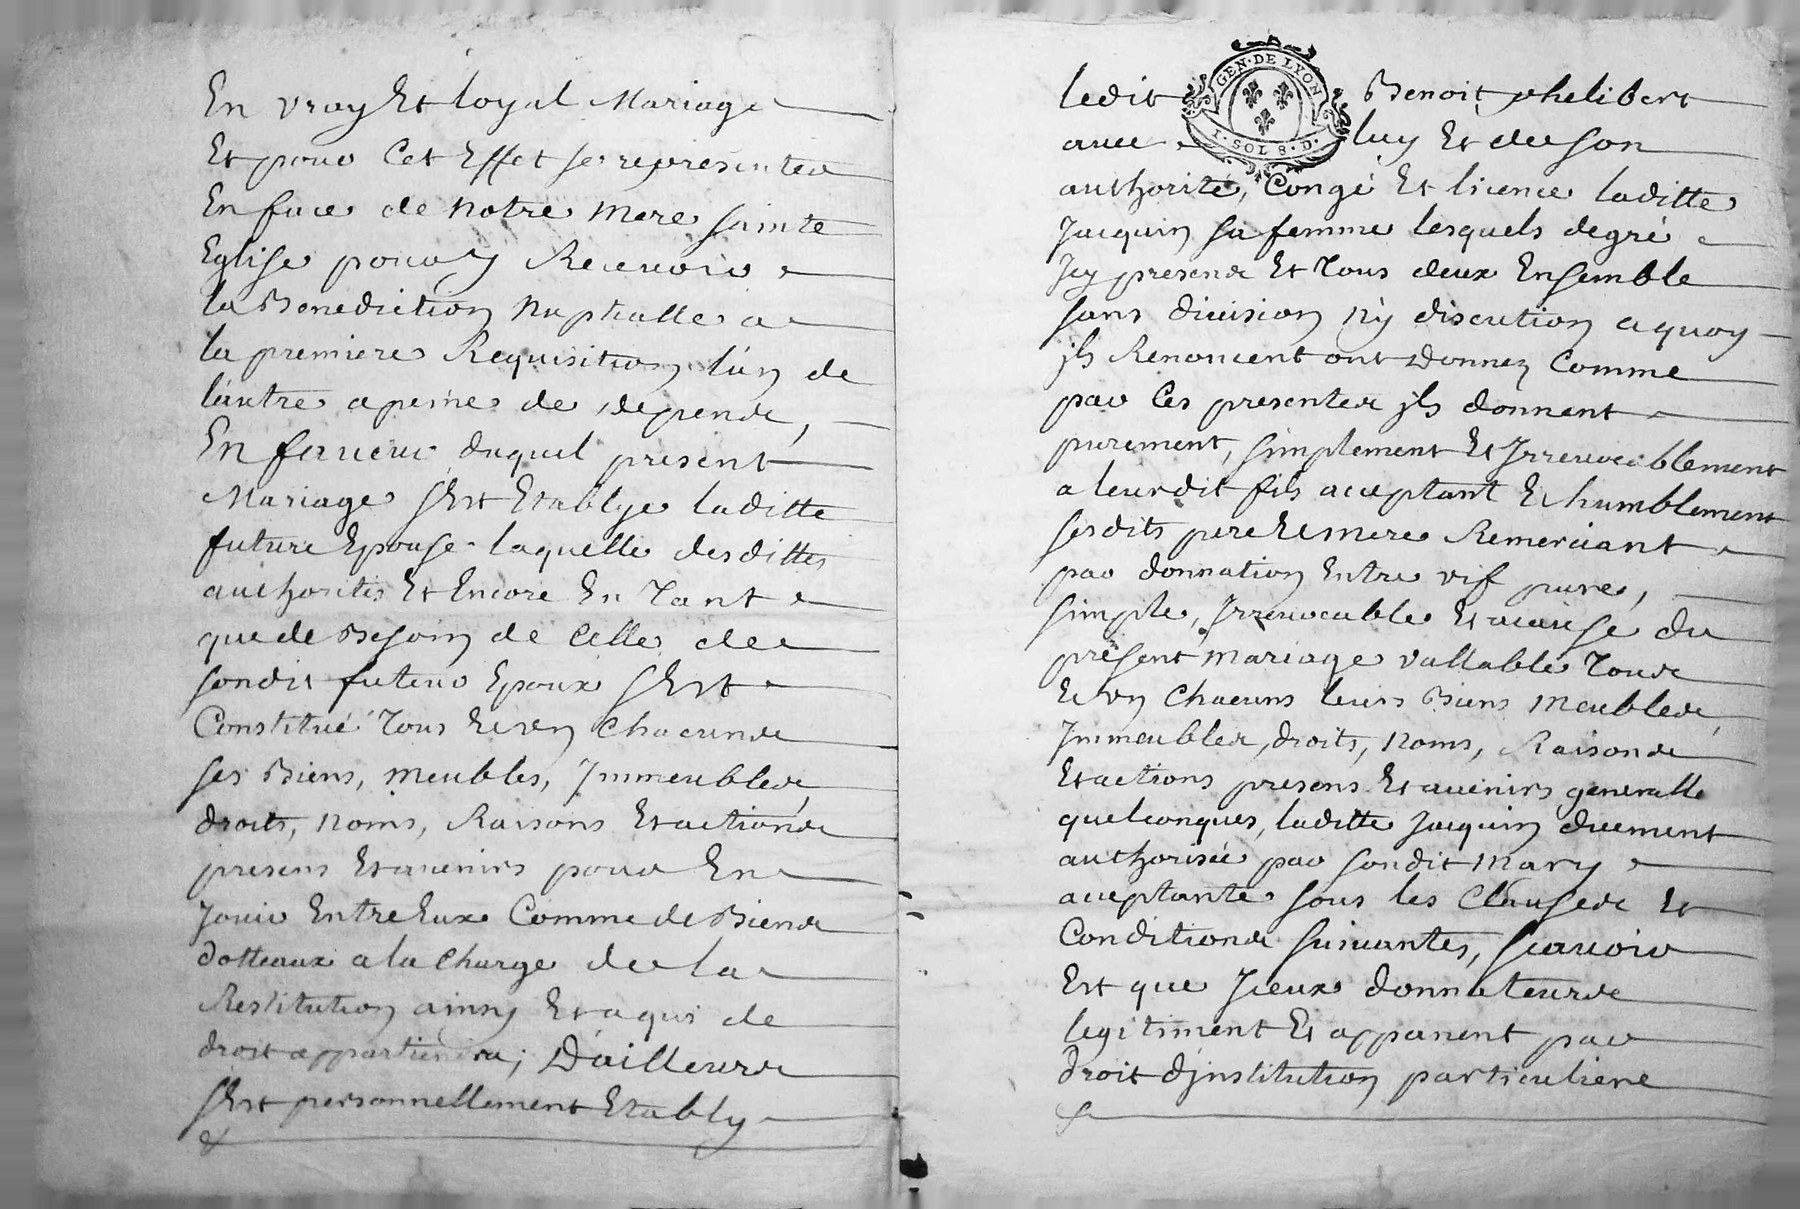 En vray Et loyal Mariage
Et pour Cet Effet se representer
En face de notre mere sainte
Eglise pour y Recevoir
la Benediction Nuptialle a
la premiere Requisition l'un de
l'autre a peine de depends,
En faveur duquel present
Mariage s'Est Etablye laditte
future Epouse laquelle desdittes
authorités Et Encore En Tant
que de Besoin de Celle de
sondit futeur Epoux s'Est
Constitué Tous Et Un Chacuns
ses Biens, meubles, Immeubles,
droits, Noms, Raisons Et actions
presens Et avenirs pour En
Jouir Entre Eux Comme de Biens
dotteaux a la Charge de la
Restitution ainsy Et a qui de
droit appartiendra; D'ailleurs
s'Est personnellement Etably
GEN·DE LYON
1·SOL 8·D·
ledit Benoit phelibert
avec luy Et de son
authorité, Congé Et licence laditte
Jacquin sa femme lesquels de gré
Icy presens Et Tous deux Ensemble
sans division Ny discution a quoy
ils Renoncent ont Donnez Comme
par Ces presentes ils donnent
purement, simplement Et Irrevocablement
a leurdit fils aceptant Et humblement
sesdits pere Et mere Remerciant
par donnation Entre vif pure,
simple, Irrevocable Et a cause du
présent mariage vallable Tous
Et Un Chacuns leurs Biens meubles,
Immeubles, droits, Noms, Raisons
Et actions presens Et avenirs generalle
quelconques, laditte Jacquin duement
authorisée par sondit mary
aceptante sous les Clauses Et
Conditions suivantes, scavoir
Est que Iceux donnateurs
legitiment Et appanent par
droit d'institution particuliere